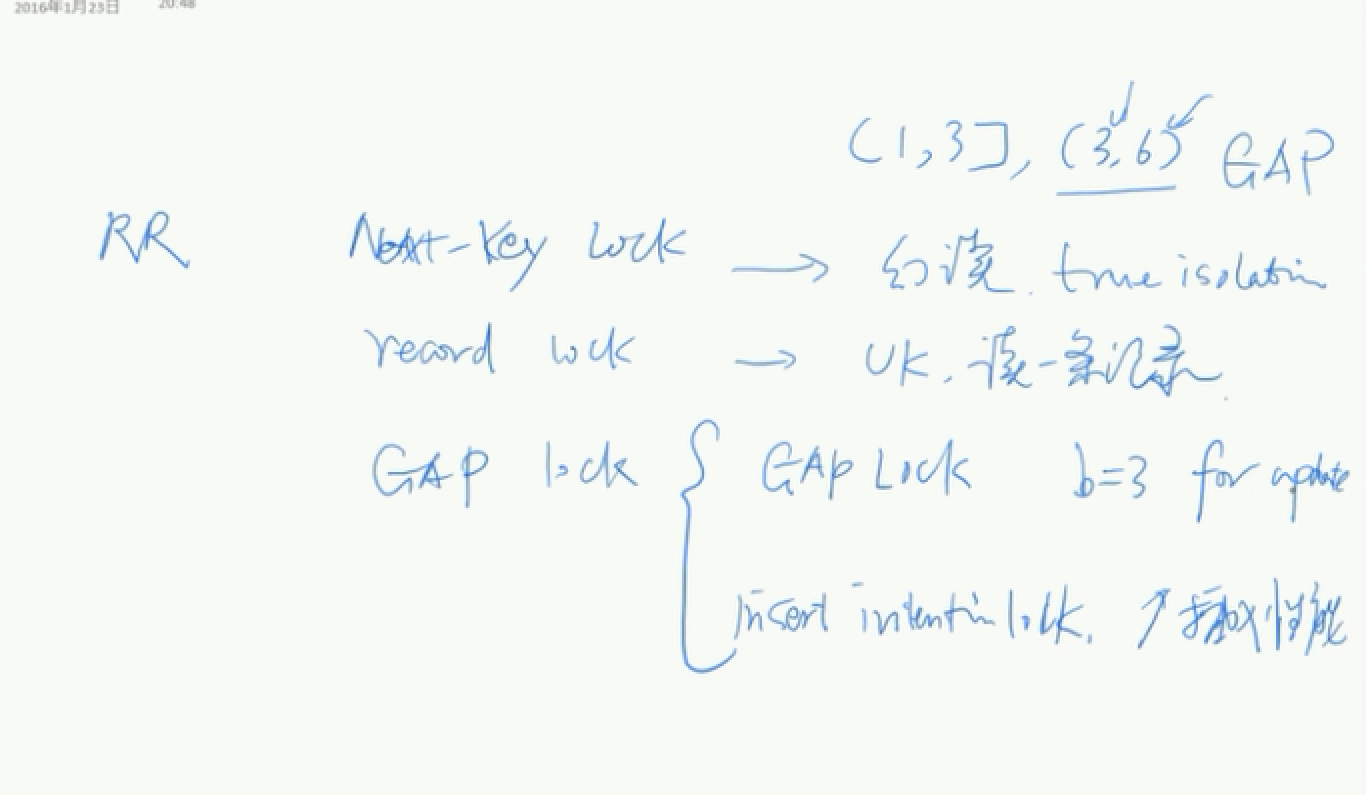 2016年1月23日 20:48
(1,3], (3,6) GAP
RR Next-Key lock → 幻读. true isolatin
record lock → UK. 读一条记录.
GAP lock { GAP Lock b=3 for update
insert intentin lock. ↑插入性能